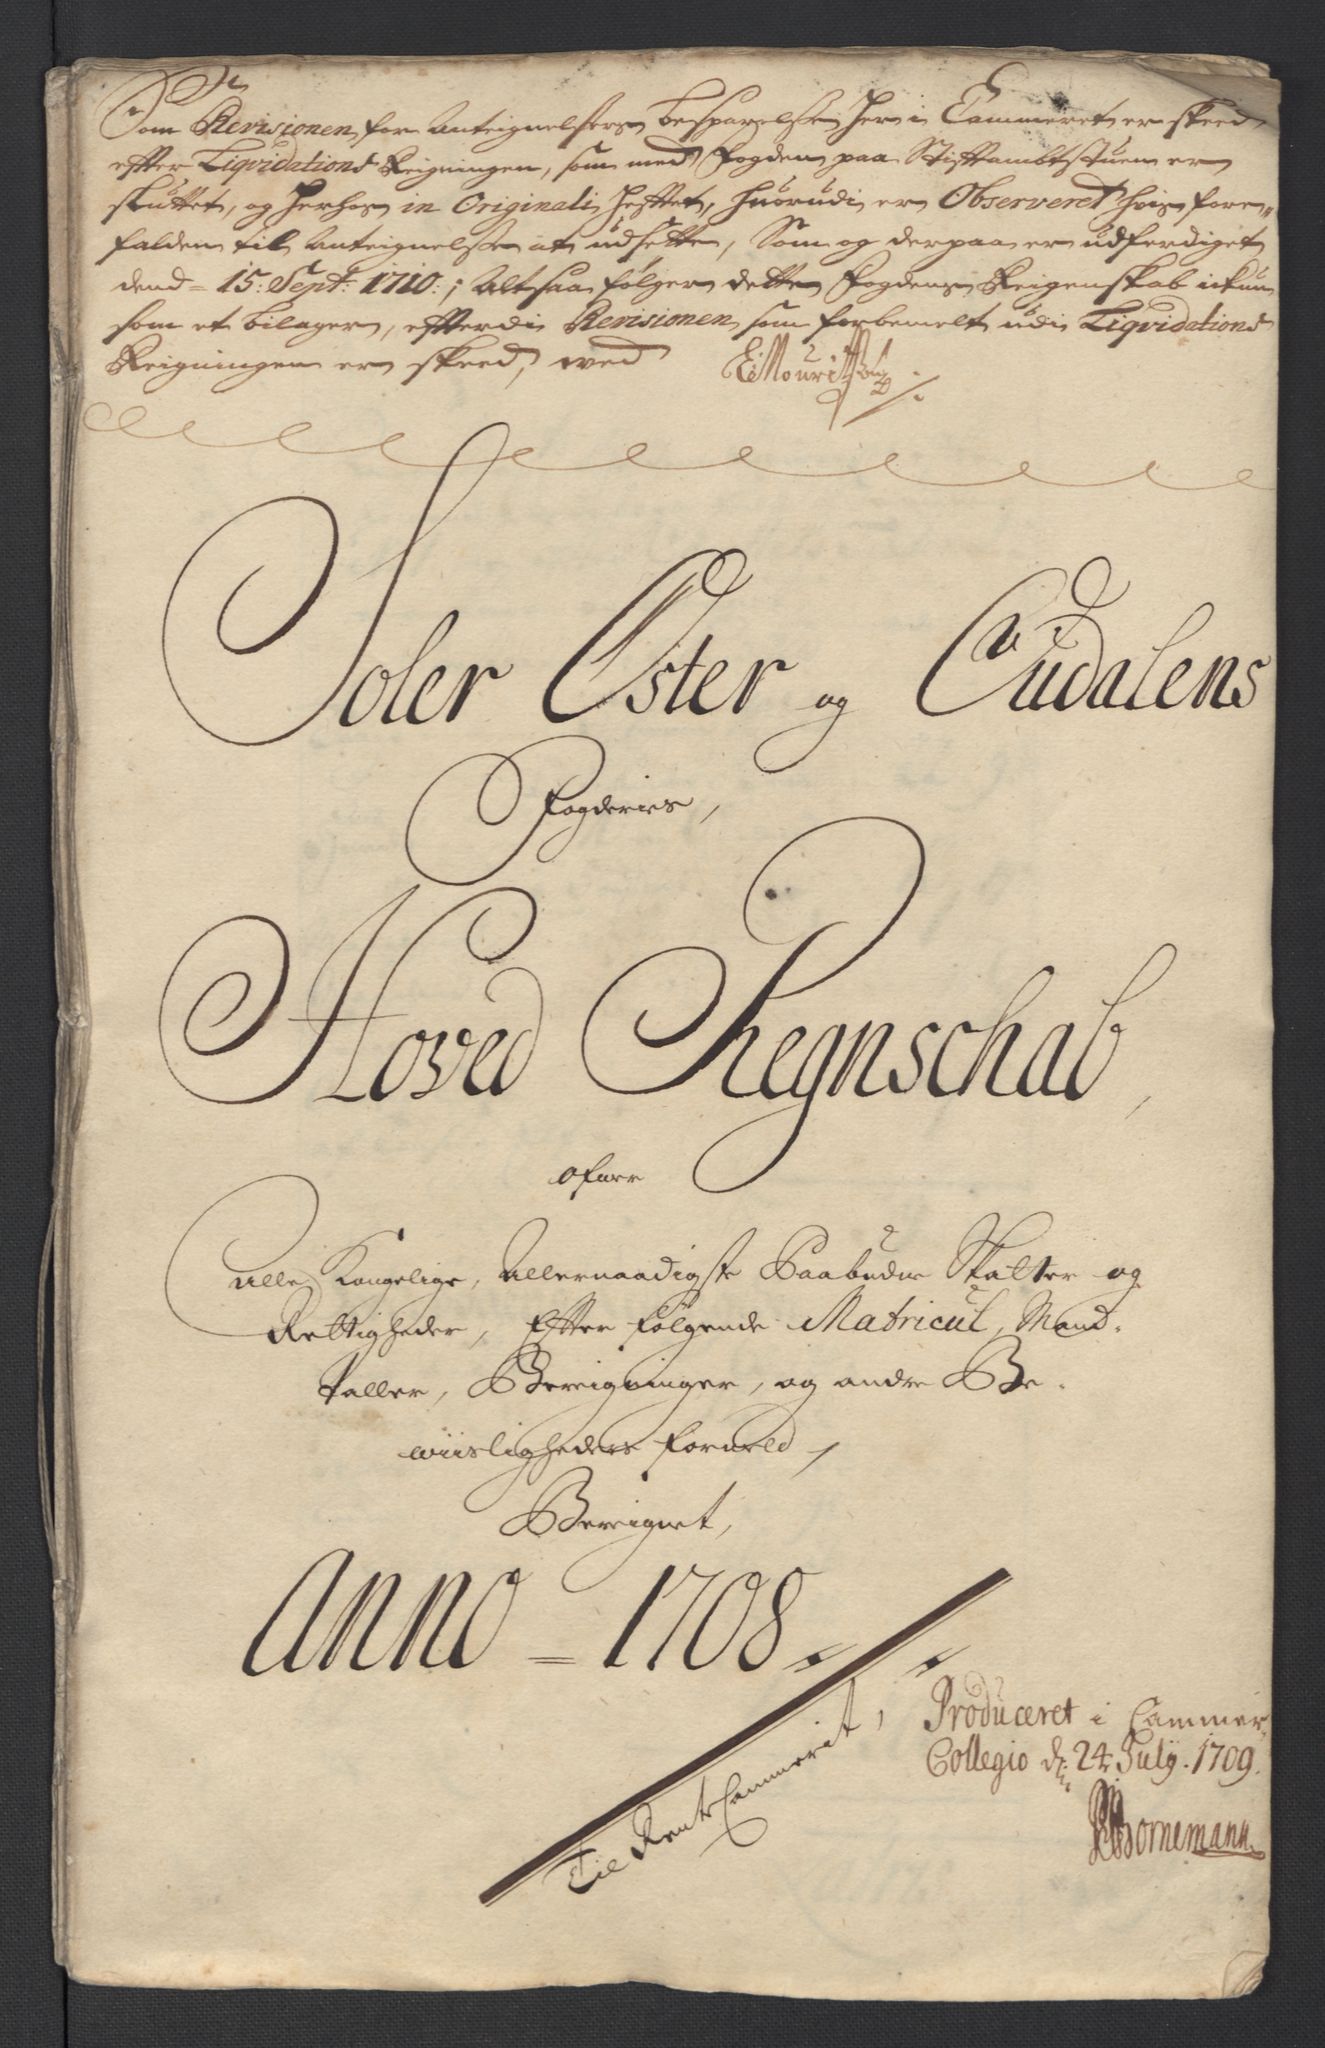 Som Revisionen for Anteignelsers besparelse her i Cammeret er skeed
efter Liqvidations Reigningen, som med Fogden paa Stiftambtstuen er
sluttet, og herhos in Originali heftet, huorudi er Observeret hvis fore-
falden til Anteignelse at udsette, Som og derpaa er udferdiget
dend 15: Sept: 1710: ; Altsaa følger dette Fogdens Reigenskab ickun
som et bilager, efterdi Revisionen som forbemelt udi Liqvidations
Reigningen er skeed, wed
Soler Øster og Oudalens
Fogderies,
Hoved Regnschab,
ofuer
alle Kongelige, Allernaadigste Paabudne Skatter og
Rettigheder, Efter følgende Matricul, Mand-
taller, Bereigninger, og andre Be-
wiisligheder forned,
Bereignet,
Anno = 1708 ./.
Til Rente Cammerit,
Produceret i Cammer
Collegio d: 24 Julij. 1709.
Bornemann